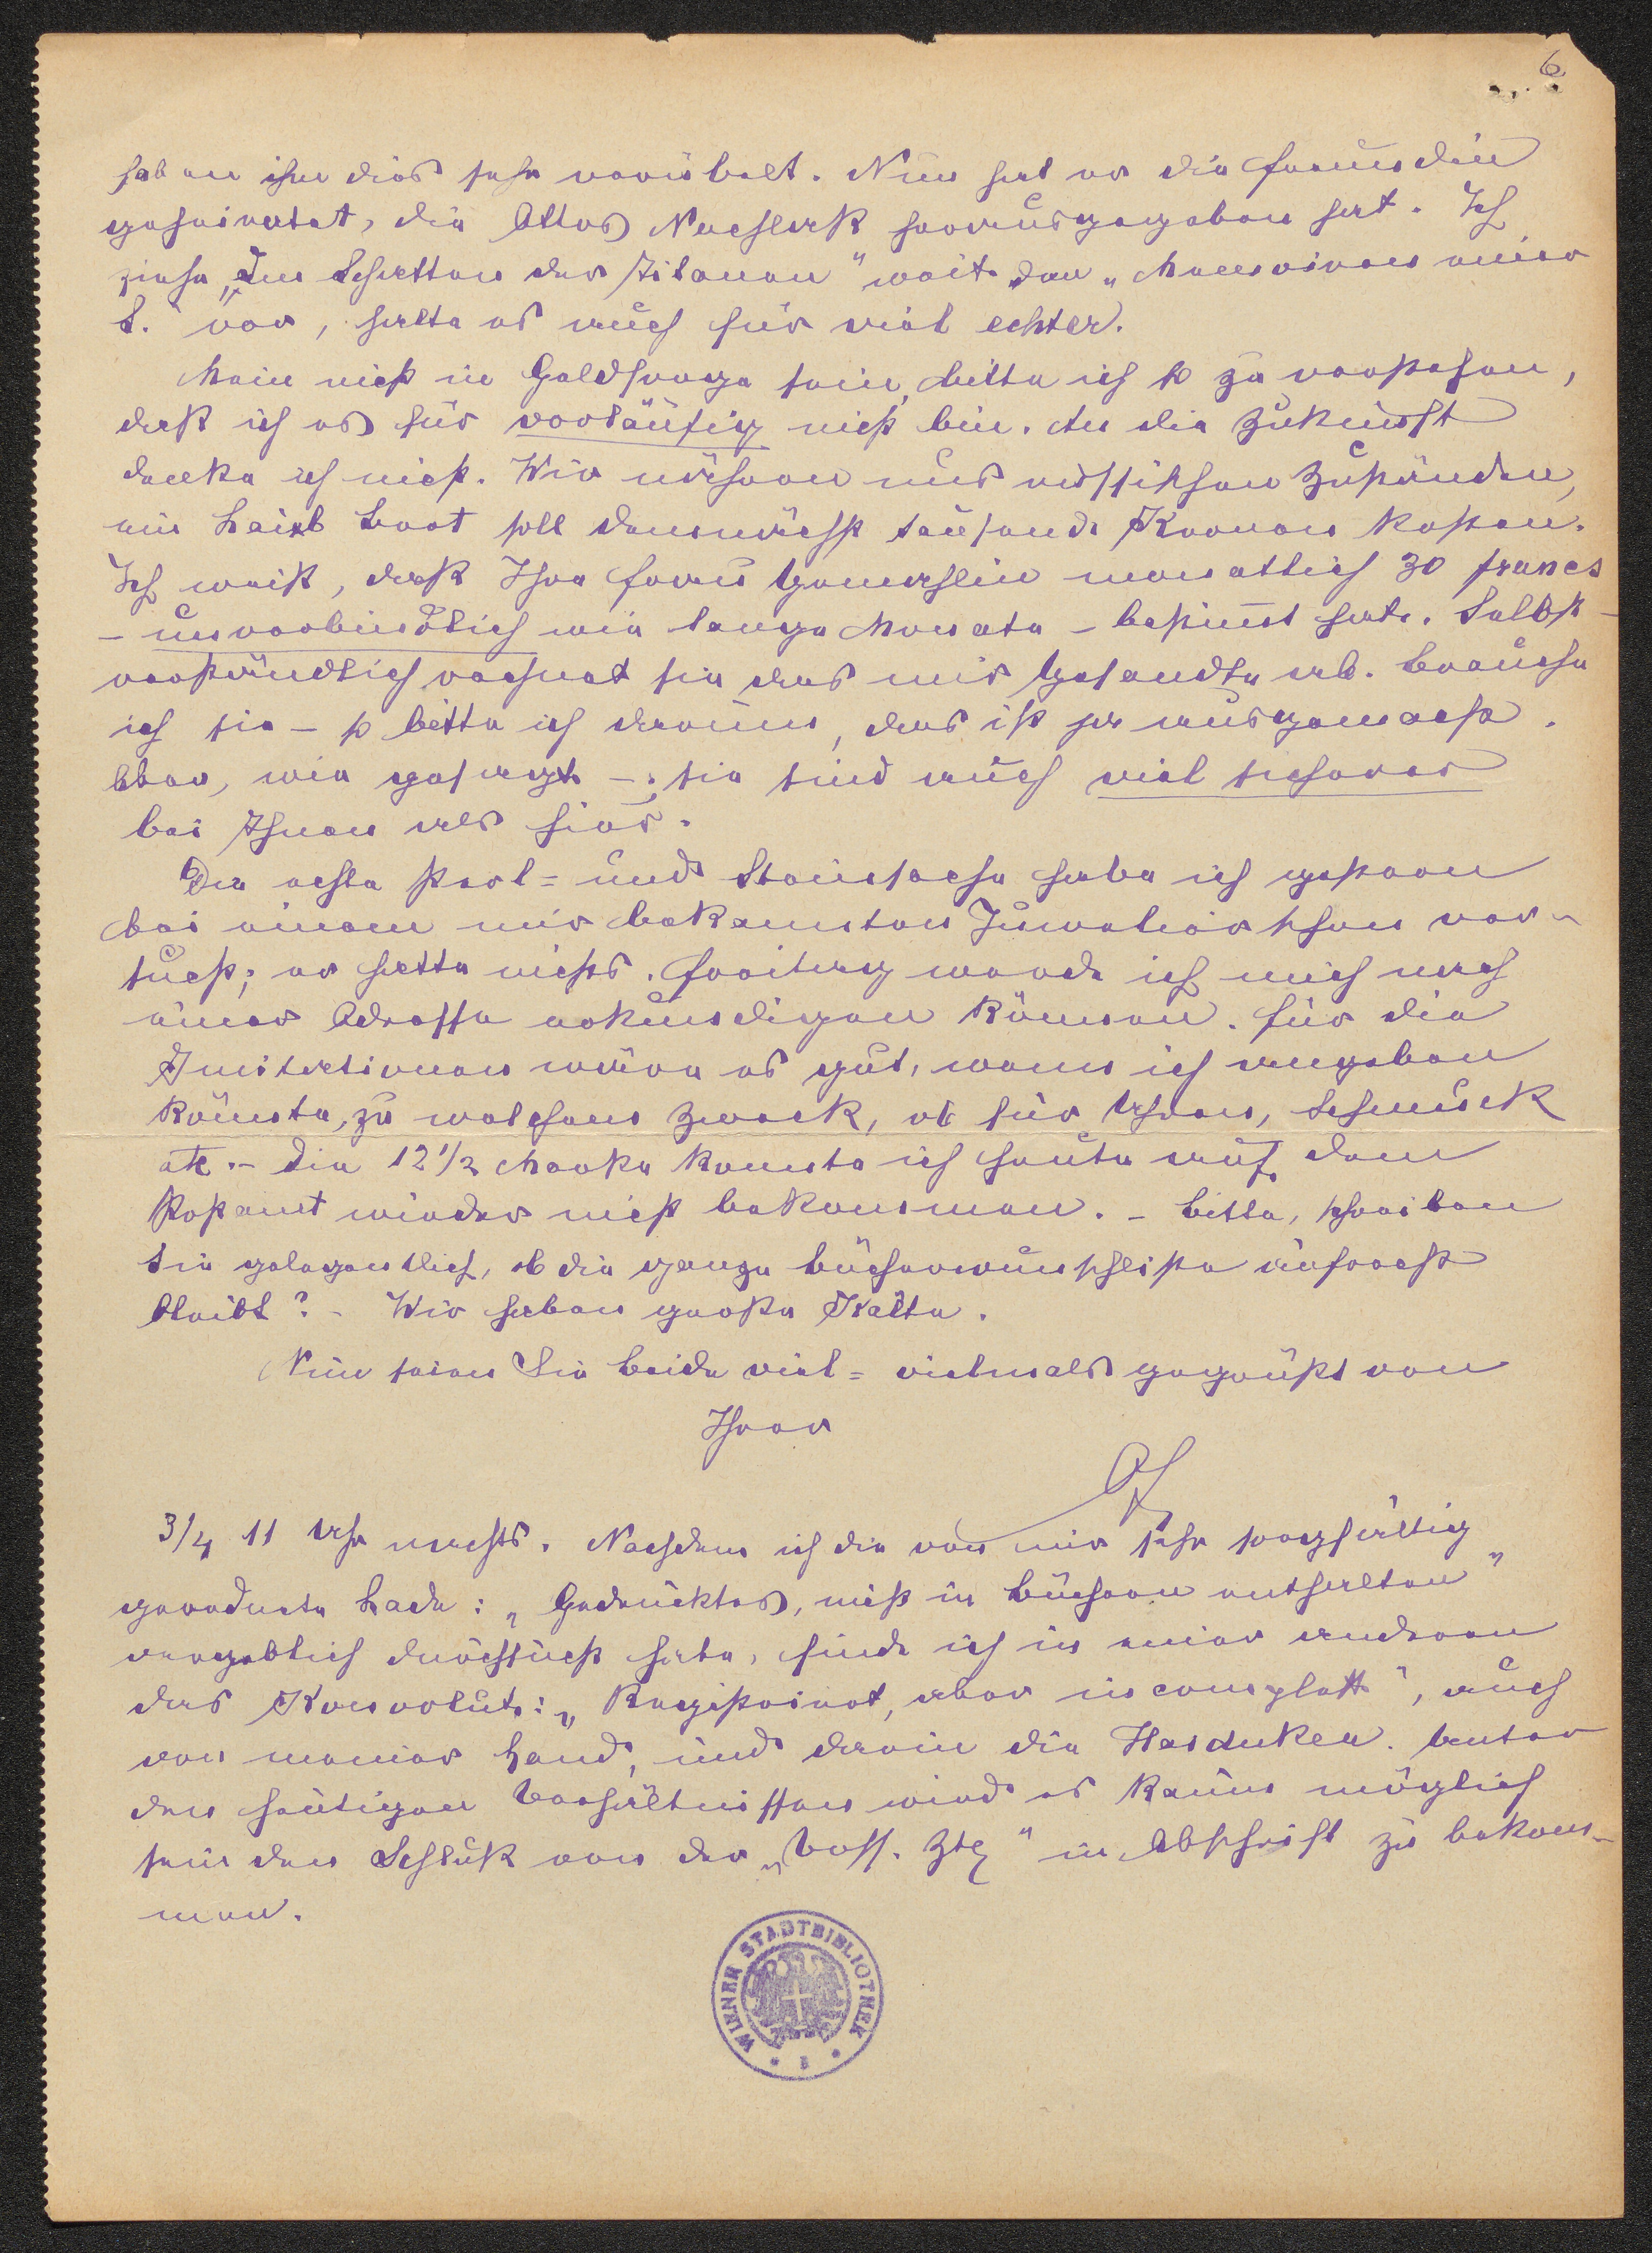 6
haben ihm dies sehr verübelt. Nun hat er die Freundin
geheiratet, die Ottos Nachlaß herausgegeben hat. Ich
ziehe „Im Schatten der Titanen" weit den „Memoiren einer
S." vor, halte es auch für viel echter.
Mein nicht in Geldsorge sein, bitte ich so zu verstehen,
daß ich es für vorläufig nicht bin. An die Zukunft
denke ich nicht. Wir nähern uns russischen Zuständen,
ein Laib Brot soll demnächst tausend Kronen kosten.
Ich weiß, daß Ihre Frau Gemahlin monatlich 30 francs
– unverbindlich wie lange Monate – bestimmt hat. Selbst-
verständlich rechnet sie das mir Gesandte ab. Brauche
ich sie – so bitte ich darum, das ist ja ausgemacht.
Aber, wie gesagt –: sie sind auch viel sicherer
bei Ihnen als hier.
Die echte Perl- und Steinsache habe ich gestern
bei einem mir bekannten Juwelier schon ver-
sucht; er hatte nichts. Freitag werde ich mich nach
einer Adresse erkundigen können. Für die
Imitationen wäre es gut, wenn ich angeben
könnte, zu welchem Zweck, ob für Uhren, Schmuck
etc. – Die 12 1/2 Marke konnte ich heute auf dem
Postamt wieder nicht bekommen. – Bitte, schreiben
Sie gelegentlich, ob die ganze Bücherwunschliste aufrecht
bleibt? – Wir haben große Kälte.
Nun seien Sie beide viel- vielmals gegrüßt von
Ihrer
3/4 11 Uhr nachts. Nachdem ich die von mir sehr sorgfältig
geordnete Lade: „Gedrucktes, nicht in Büchern enthalten"
vergeblich durchsucht habe, finde ich in einer anderen
das Konvolut: „Registriert, aber incomplett", auch
von meiner Hand, und darin die Haiduken. Unter
den heutigen Verhältnissen wird es kaum möglich
sein den Schluß von der „Voss. Ztg" in Abschrift zu bekom-
men.
WIENER STADTBIBLIOTHEK